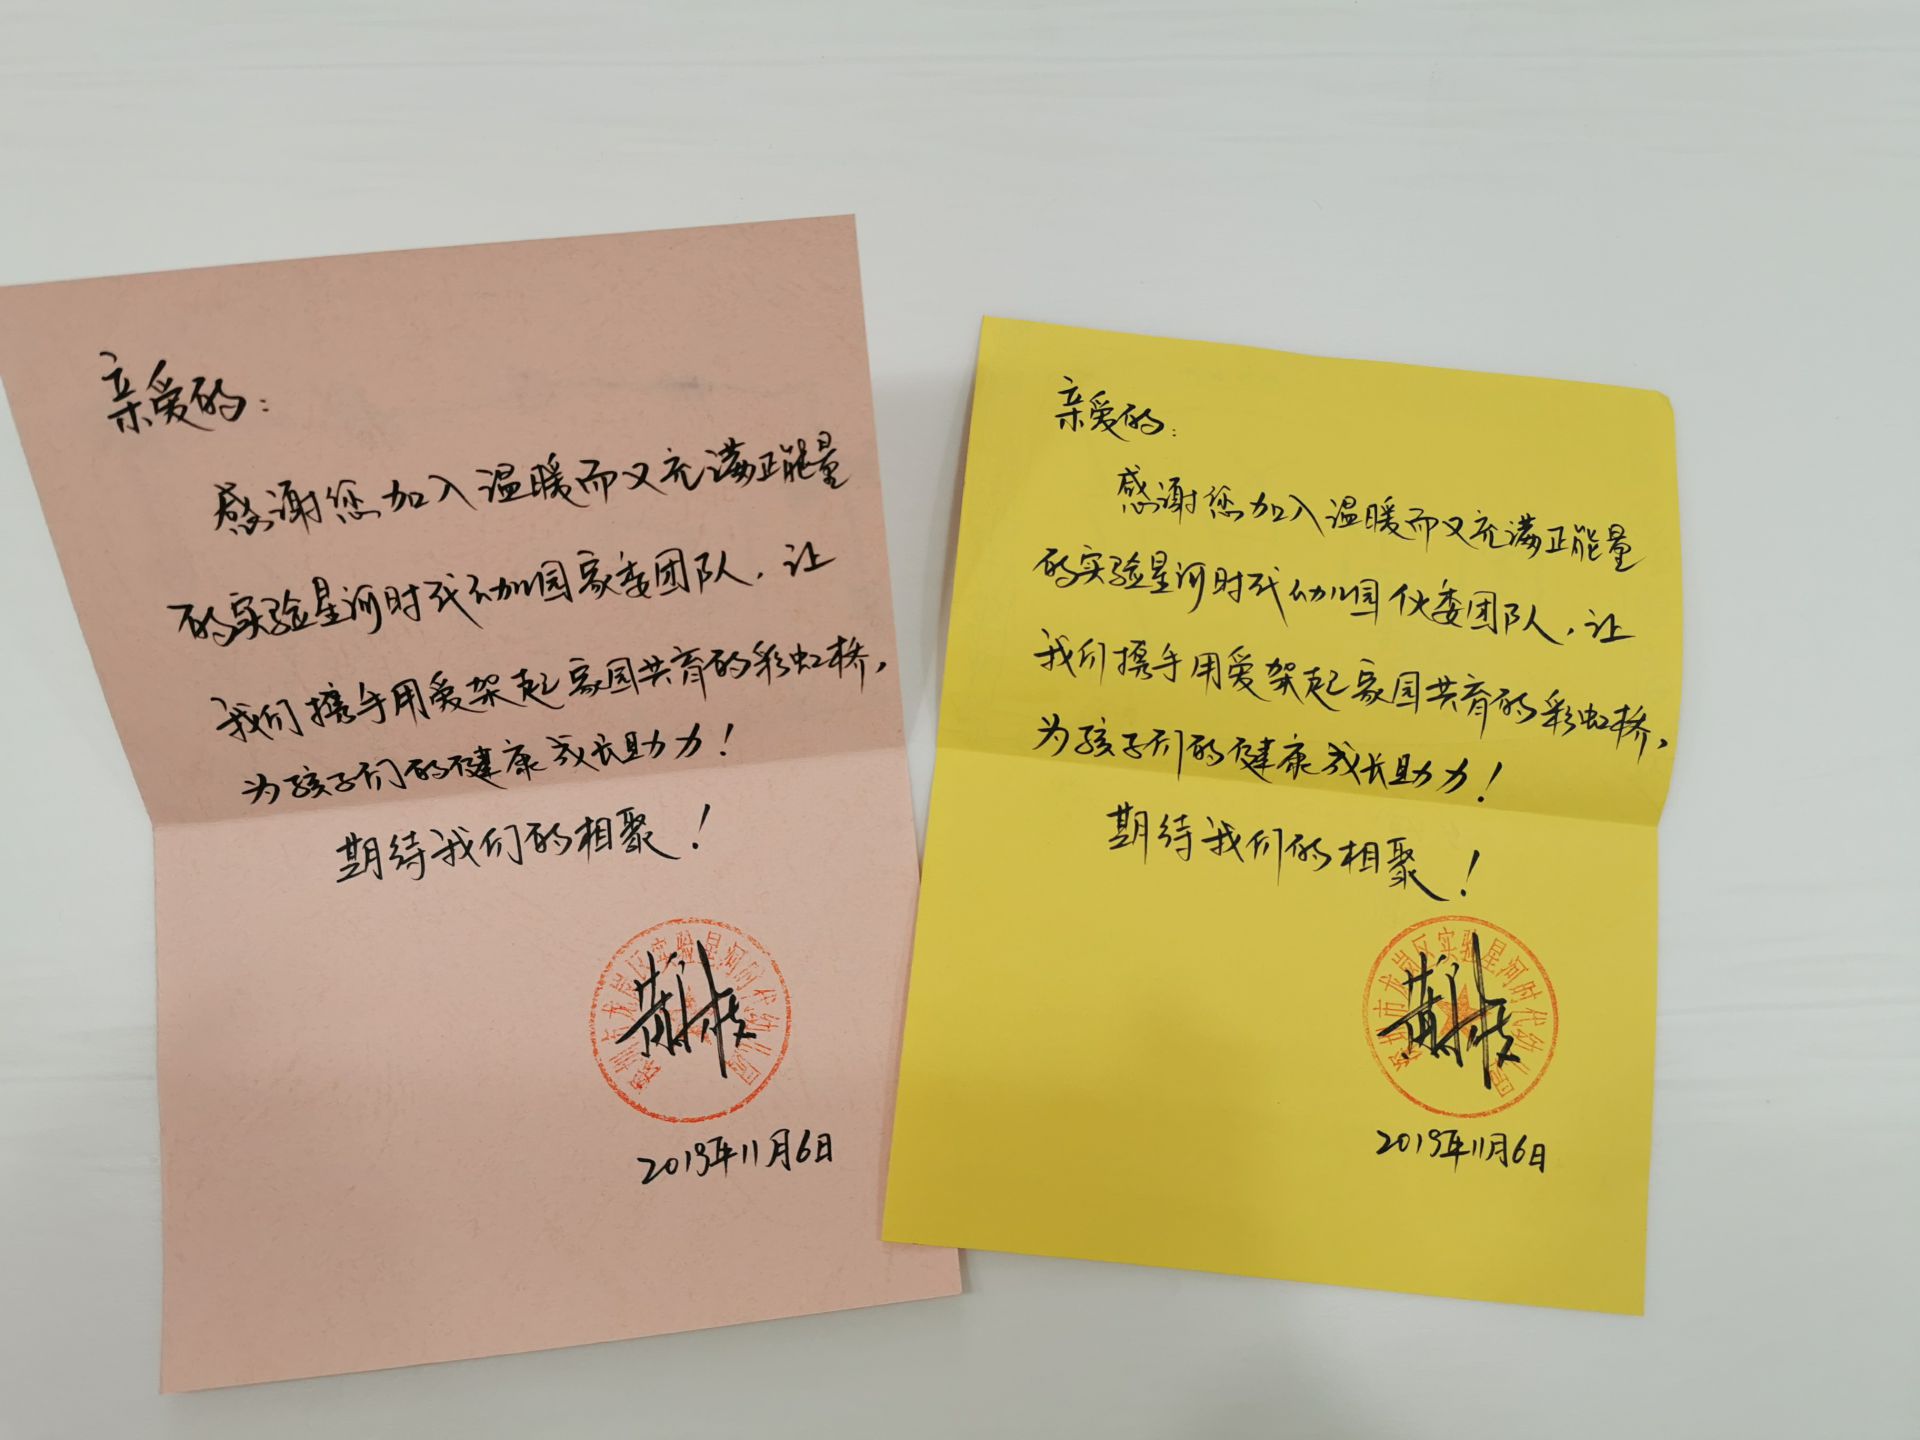 亲爱的：
感谢您加入温暖而又充满正能量
的实验星河时代幼儿园家委团队，让
我们携手用爱架起家园共育的彩虹桥，
为孩子们的健康成长助力！
期待我们的相聚！
深圳市龙岗区实验星河时代幼儿园
2019年11月6日
亲爱的：
感谢您加入温暖而又充满正能量
的实验星河时代幼儿园伙委团队，让
我们携手用爱架起家园共育的彩虹桥，
为孩子们的健康成长助力！
期待我们的相聚！
深圳市龙岗区实验星河时代幼儿园
2019年11月6日